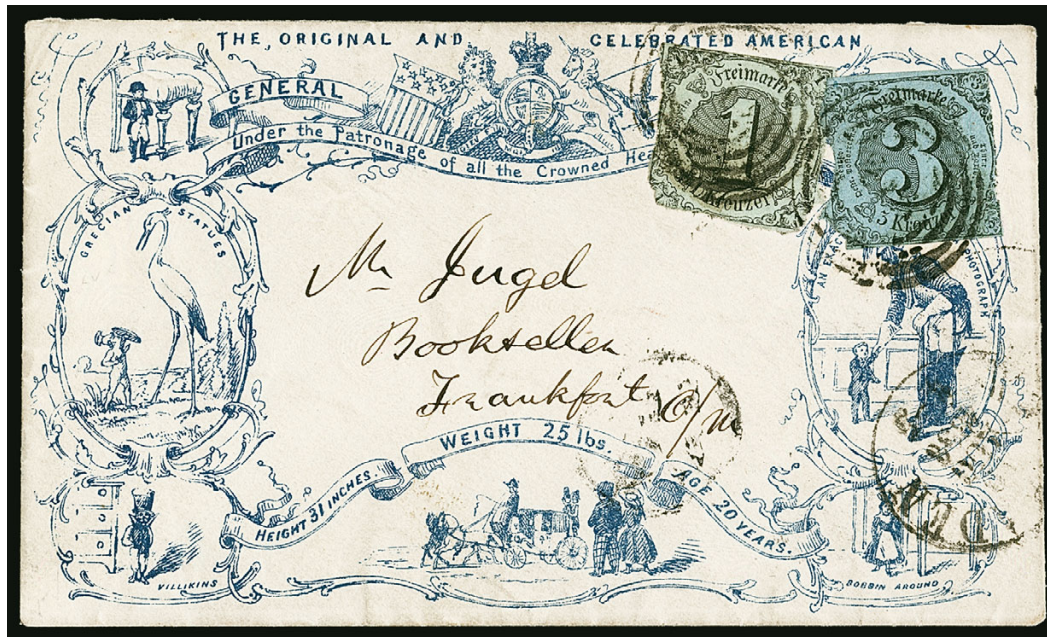 THE, ORIGINAL AND CELEBRATED AMERICAN
GENERAL
Under the Patronage of all the Crowned Hea
Freimarke
1
Kreuzer
Freimarke
3
3 Kreuzer
GRECIAN STATUES
PHOTOGRAPH
Mr Jugel
Bookseller
Frankfort O/M
HEIGHT 31 INCHES.
WEIGHT 25 lbs.
AGE 20 YEARS.
VILLIKINS
BOBBIN AROUND